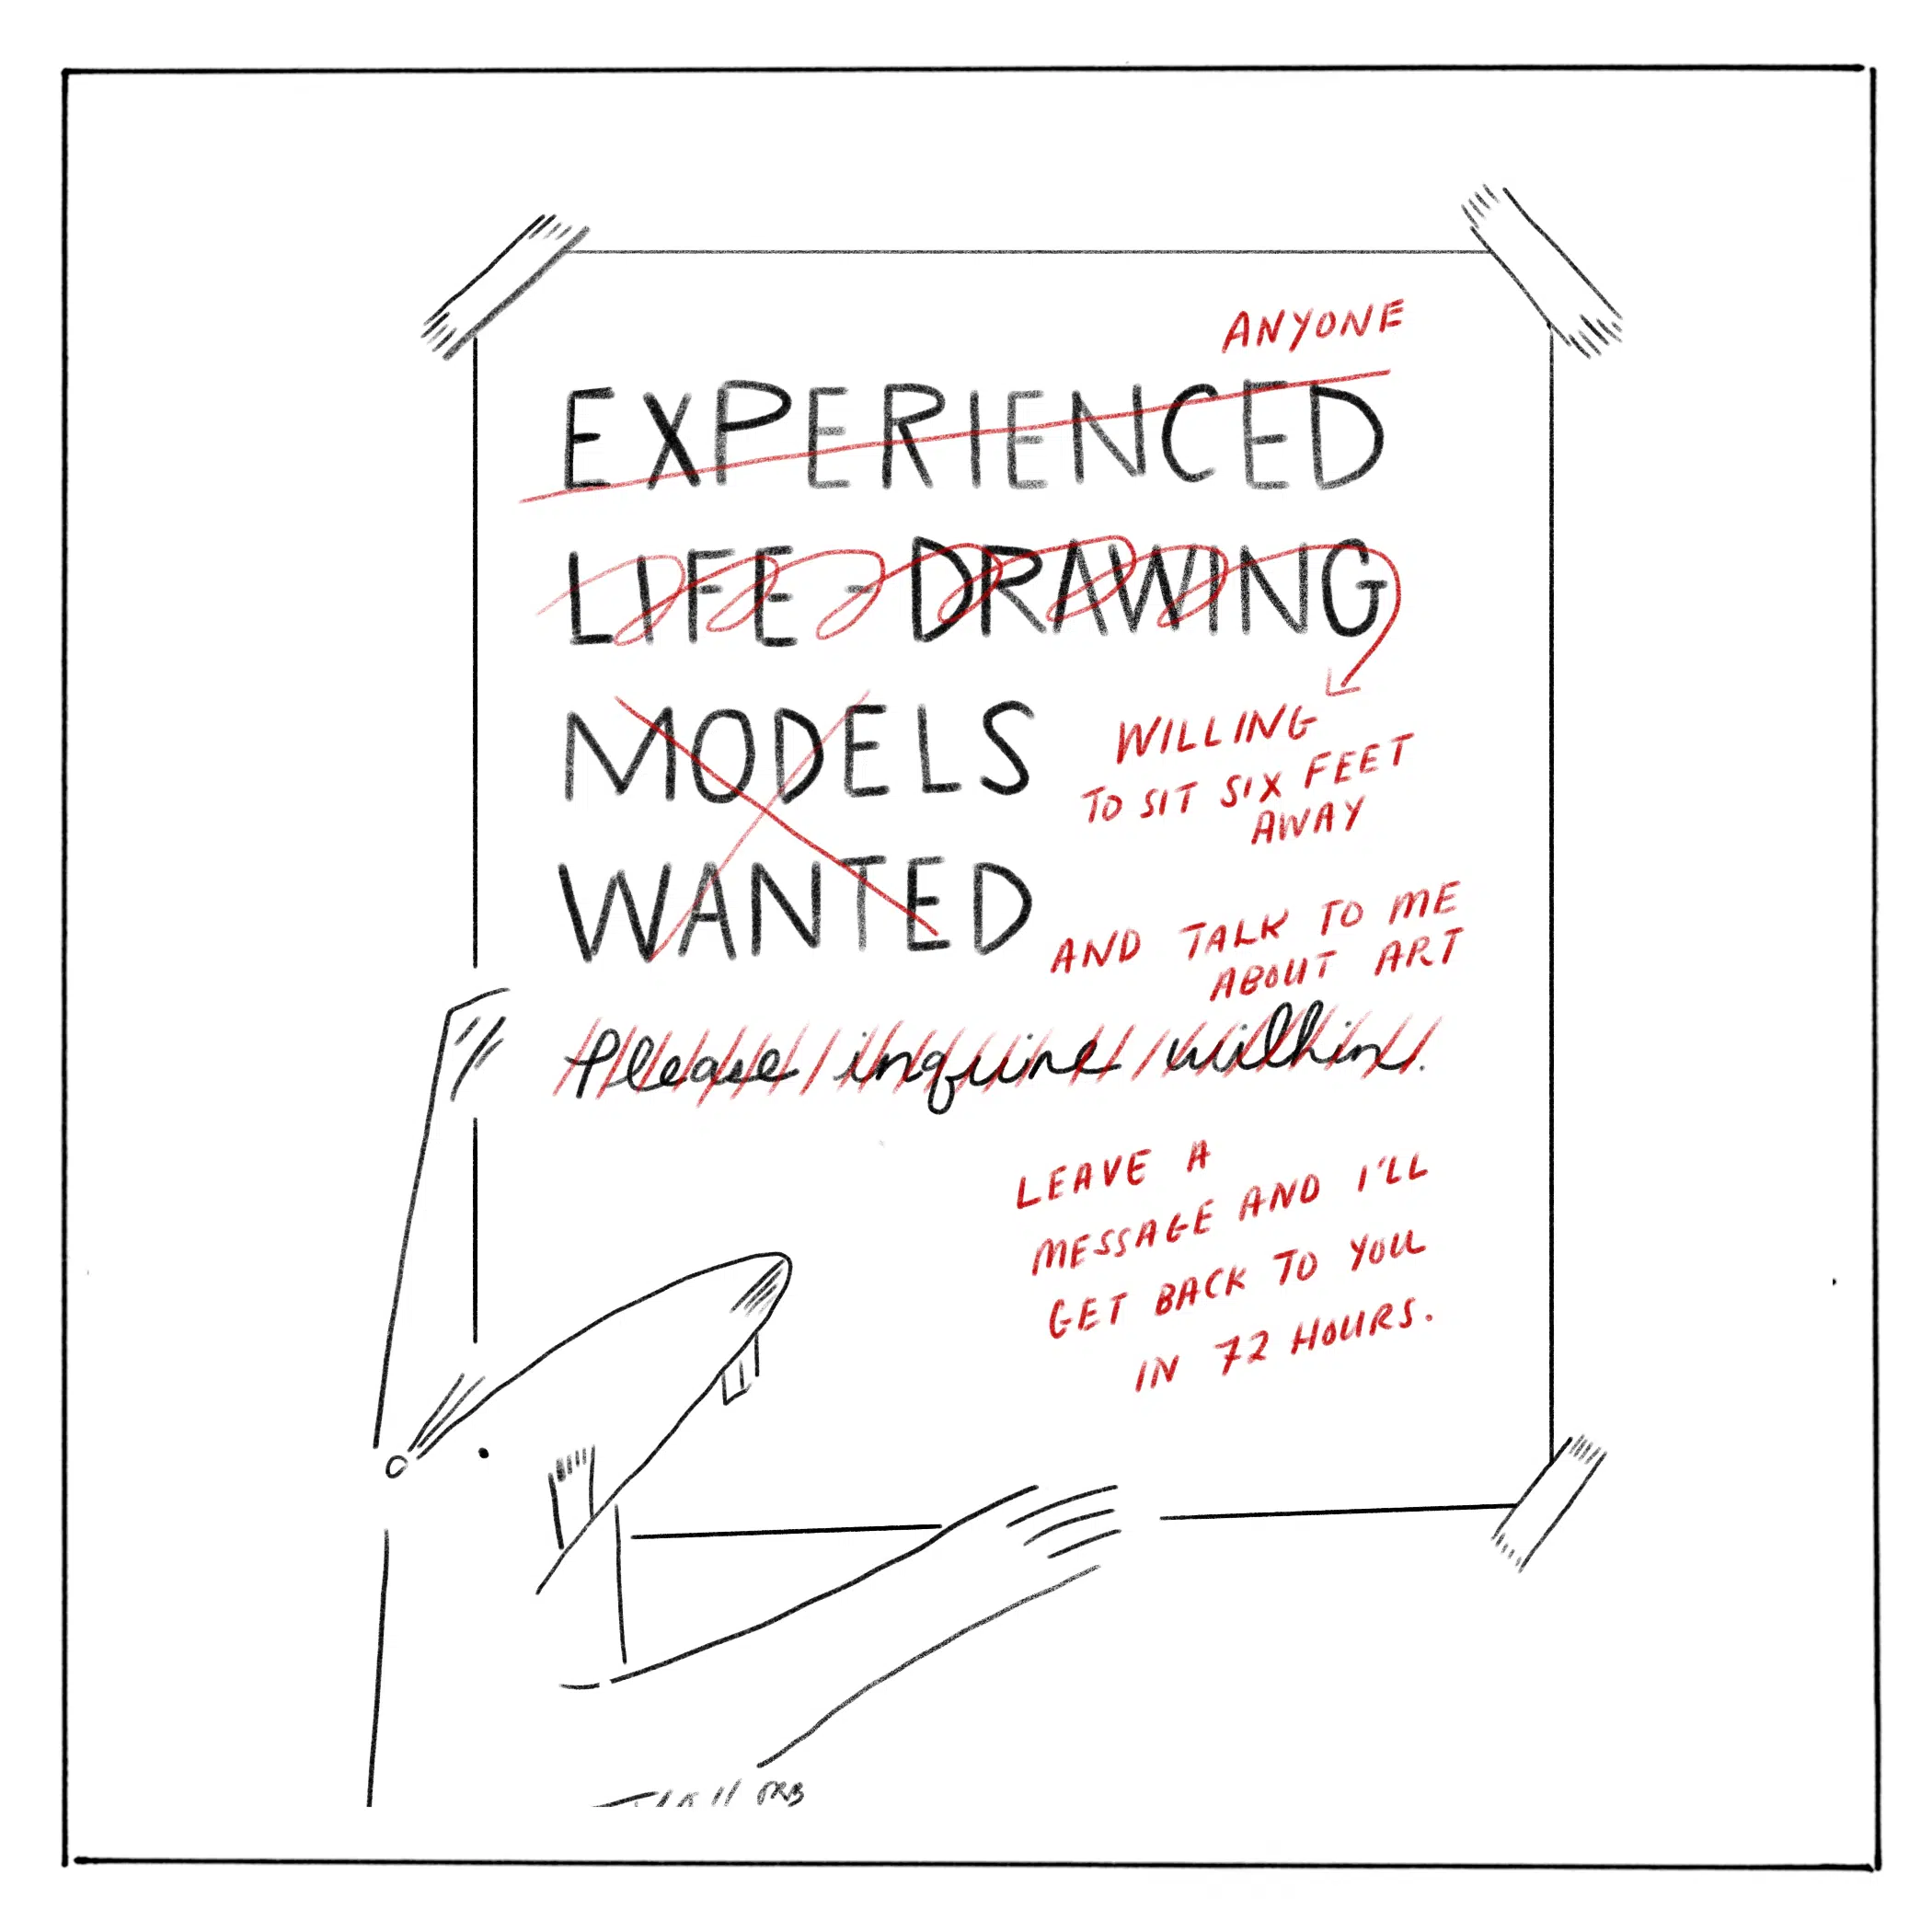 ANYONE
EXPERIENCED
LIFE-DRAWING
MODELS
WILLING
TO SIT SIX FEET
AWAY
WANTED
AND TALK TO ME
ABOUT ART
Please inquire within.
LEAVE A
MESSAGE AND I'LL
GET BACK TO YOU
IN 72 HOURS.